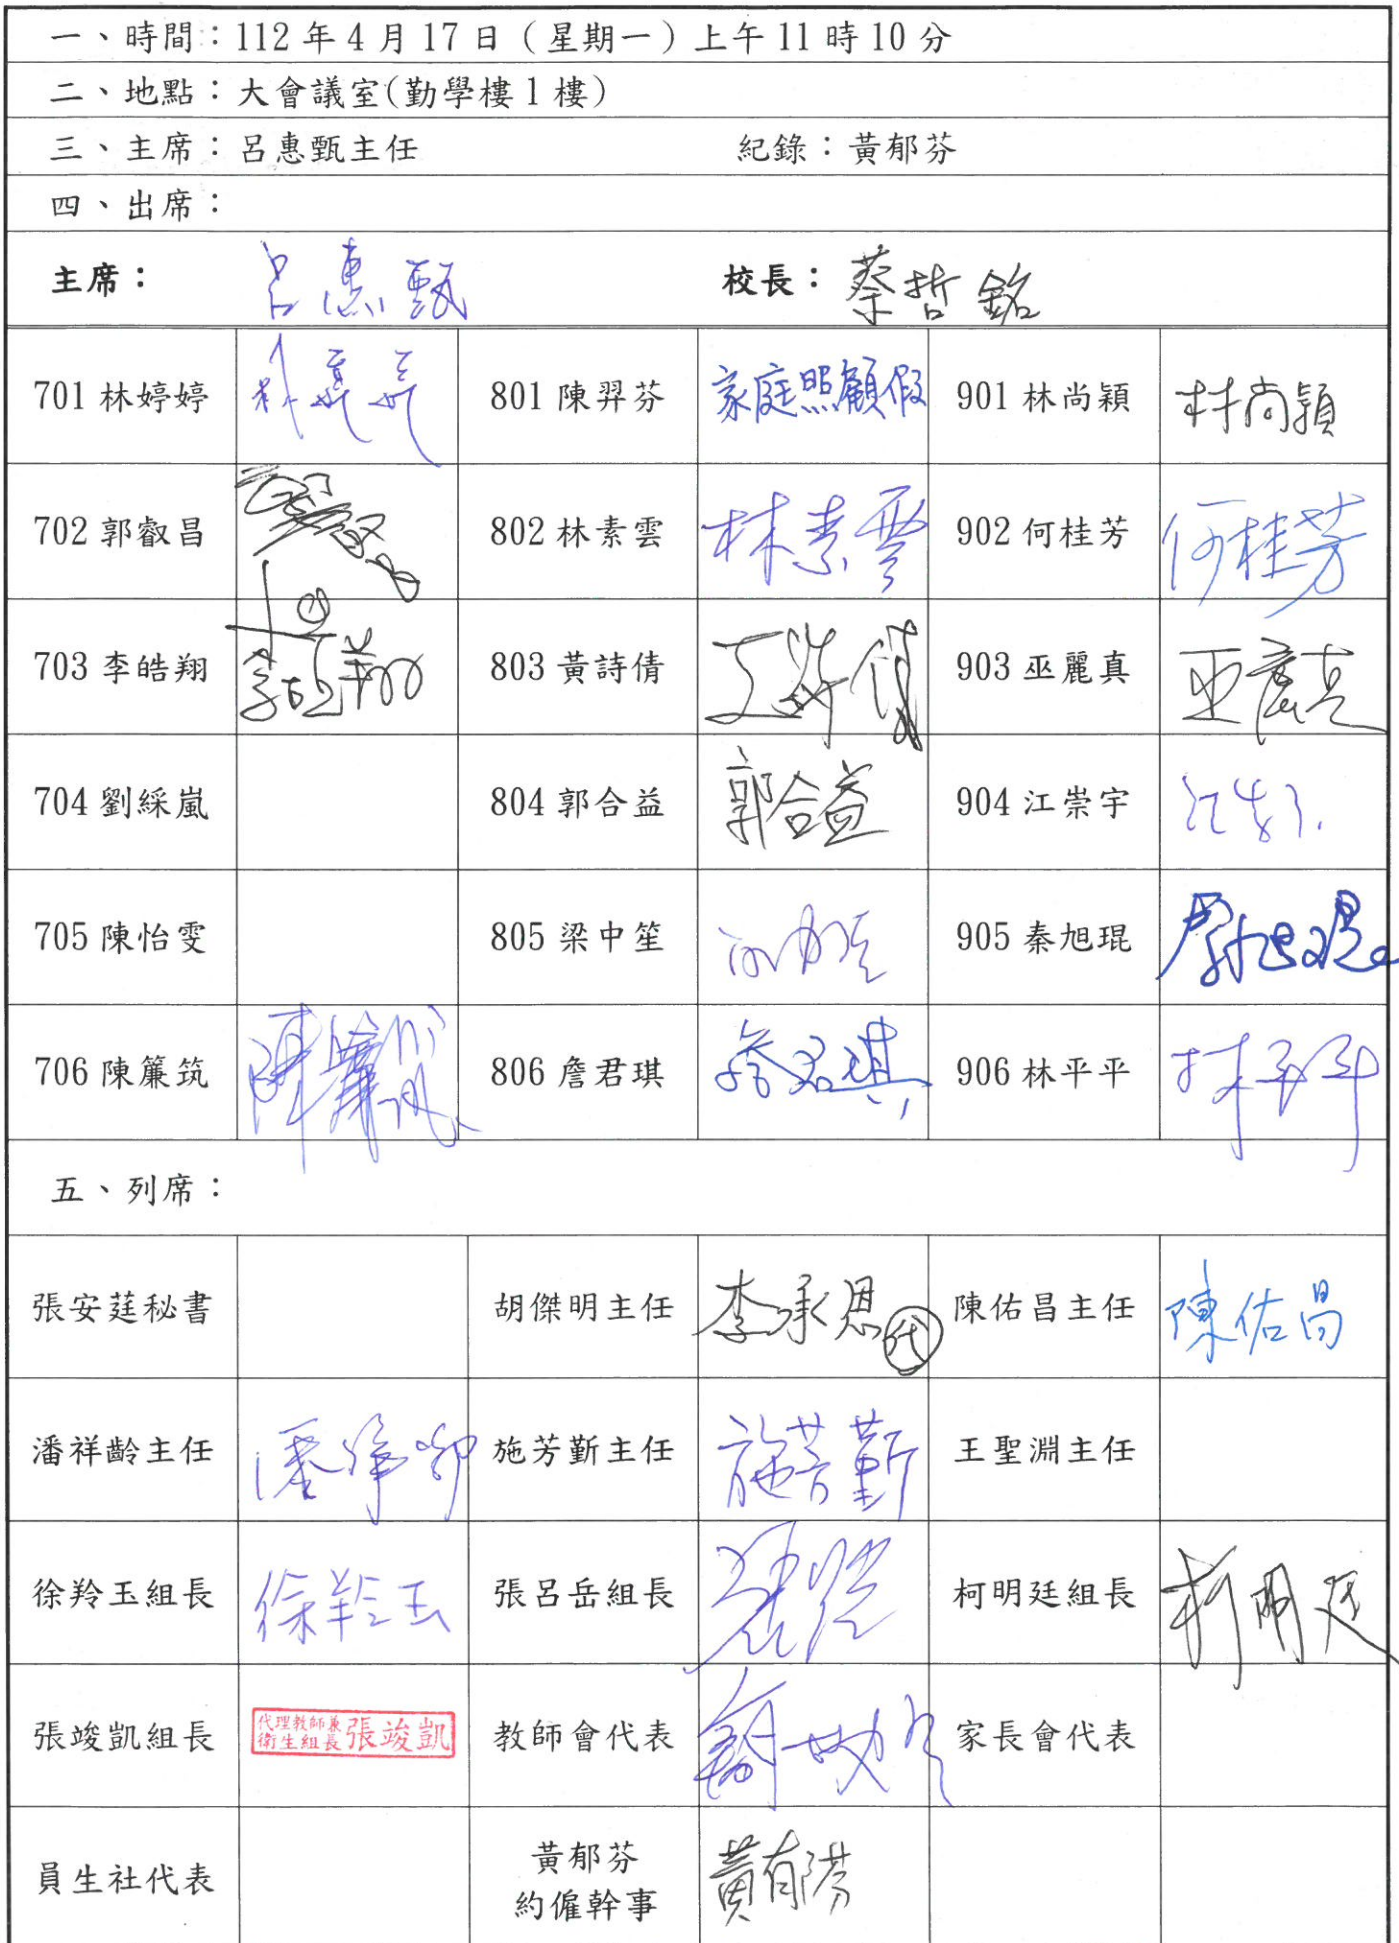 一、時間：112 年 4 月 17 日（星期一）上午 11 時 10 分
二、地點：大會議室(勤學樓 1 樓)
三、主席：呂惠甄主任 紀錄：黃郁芬
四、出席：
主席： 呂惠甄 校長： 蔡哲銘
701 林婷婷 林婷婷 801 陳羿芬 家庭照顧假 901 林尚穎 林尚穎
702 郭叡昌 802 林素雲 林素雲 902 何桂芳 何桂芳
703 李皓翔 李皓翔 803 黃詩倩 903 巫麗真 巫麗真
704 劉綵嵐 804 郭合益 郭合益 904 江崇宇
705 陳怡雯 805 梁中笙 905 秦旭琨
706 陳簾筑 陳簾筑 806 詹君琪 詹君琪 906 林平平 林平平
五、列席：
張安莛秘書 胡傑明主任 李承恩代 陳佑昌主任 陳佑昌
潘祥齡主任 潘祥齡 施芳勤主任 施芳勤 王聖淵主任
徐羚玉組長 徐羚玉 張呂岳組長 柯明廷組長 柯明廷
張竣凱組長 代理教師兼衛生組長 張竣凱 教師會代表 家長會代表
員生社代表 黃郁芬 黃郁芬
約僱幹事